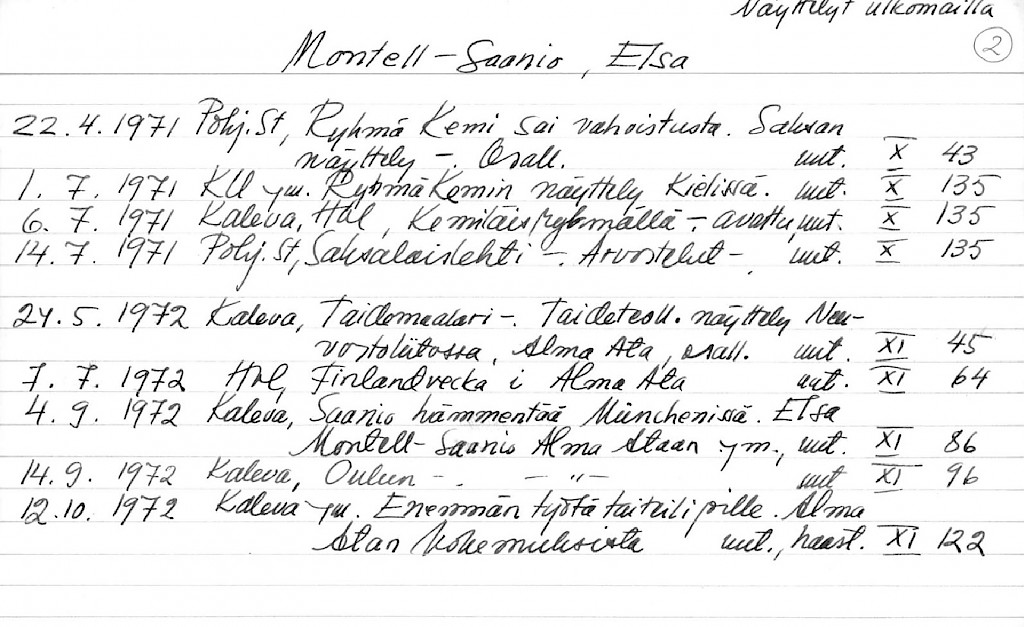 Näyttelyt ulkomailla
2
Montell-Saanio, Elsa
22.4.1971 Pohj.St, Ryhmä Kemi sai vahvistusta. Saksan
näyttely -. Osall. uut. X 43
1. 7. 1971 KU ym. Ryhmä Kemin näyttely Kielissä. uut. X 135
6. 7. 1971 Kaleva, Hbl, Kemiläisryhmällä - avattu, uut. X 135
14. 7. 1971 Pohj.St, Saksalaislehti -. Arvostelut -, uut. X 135
24. 5. 1972 Kaleva, Taidemaalari -. Taideteoll. näyttely Neu-
vostoliitossa, Alma Ata, osall. uut. XI 45
7. 7. 1972 Hbl, Finlandvecka i Alma Ata uut. XI 64
4. 9. 1972 Kaleva, Saanio hämmentää Münchenissä. Elsa
Montell-Saanio Alma Ataan ym., uut. XI 86
14. 9. 1972 Kaleva, Oulun - . - " - uut XI 96
12.10. 1972 Kaleva ym. Enemmän työtä taiteilijoille. Alma
Atan kokemuksista uut., haast. XI 122